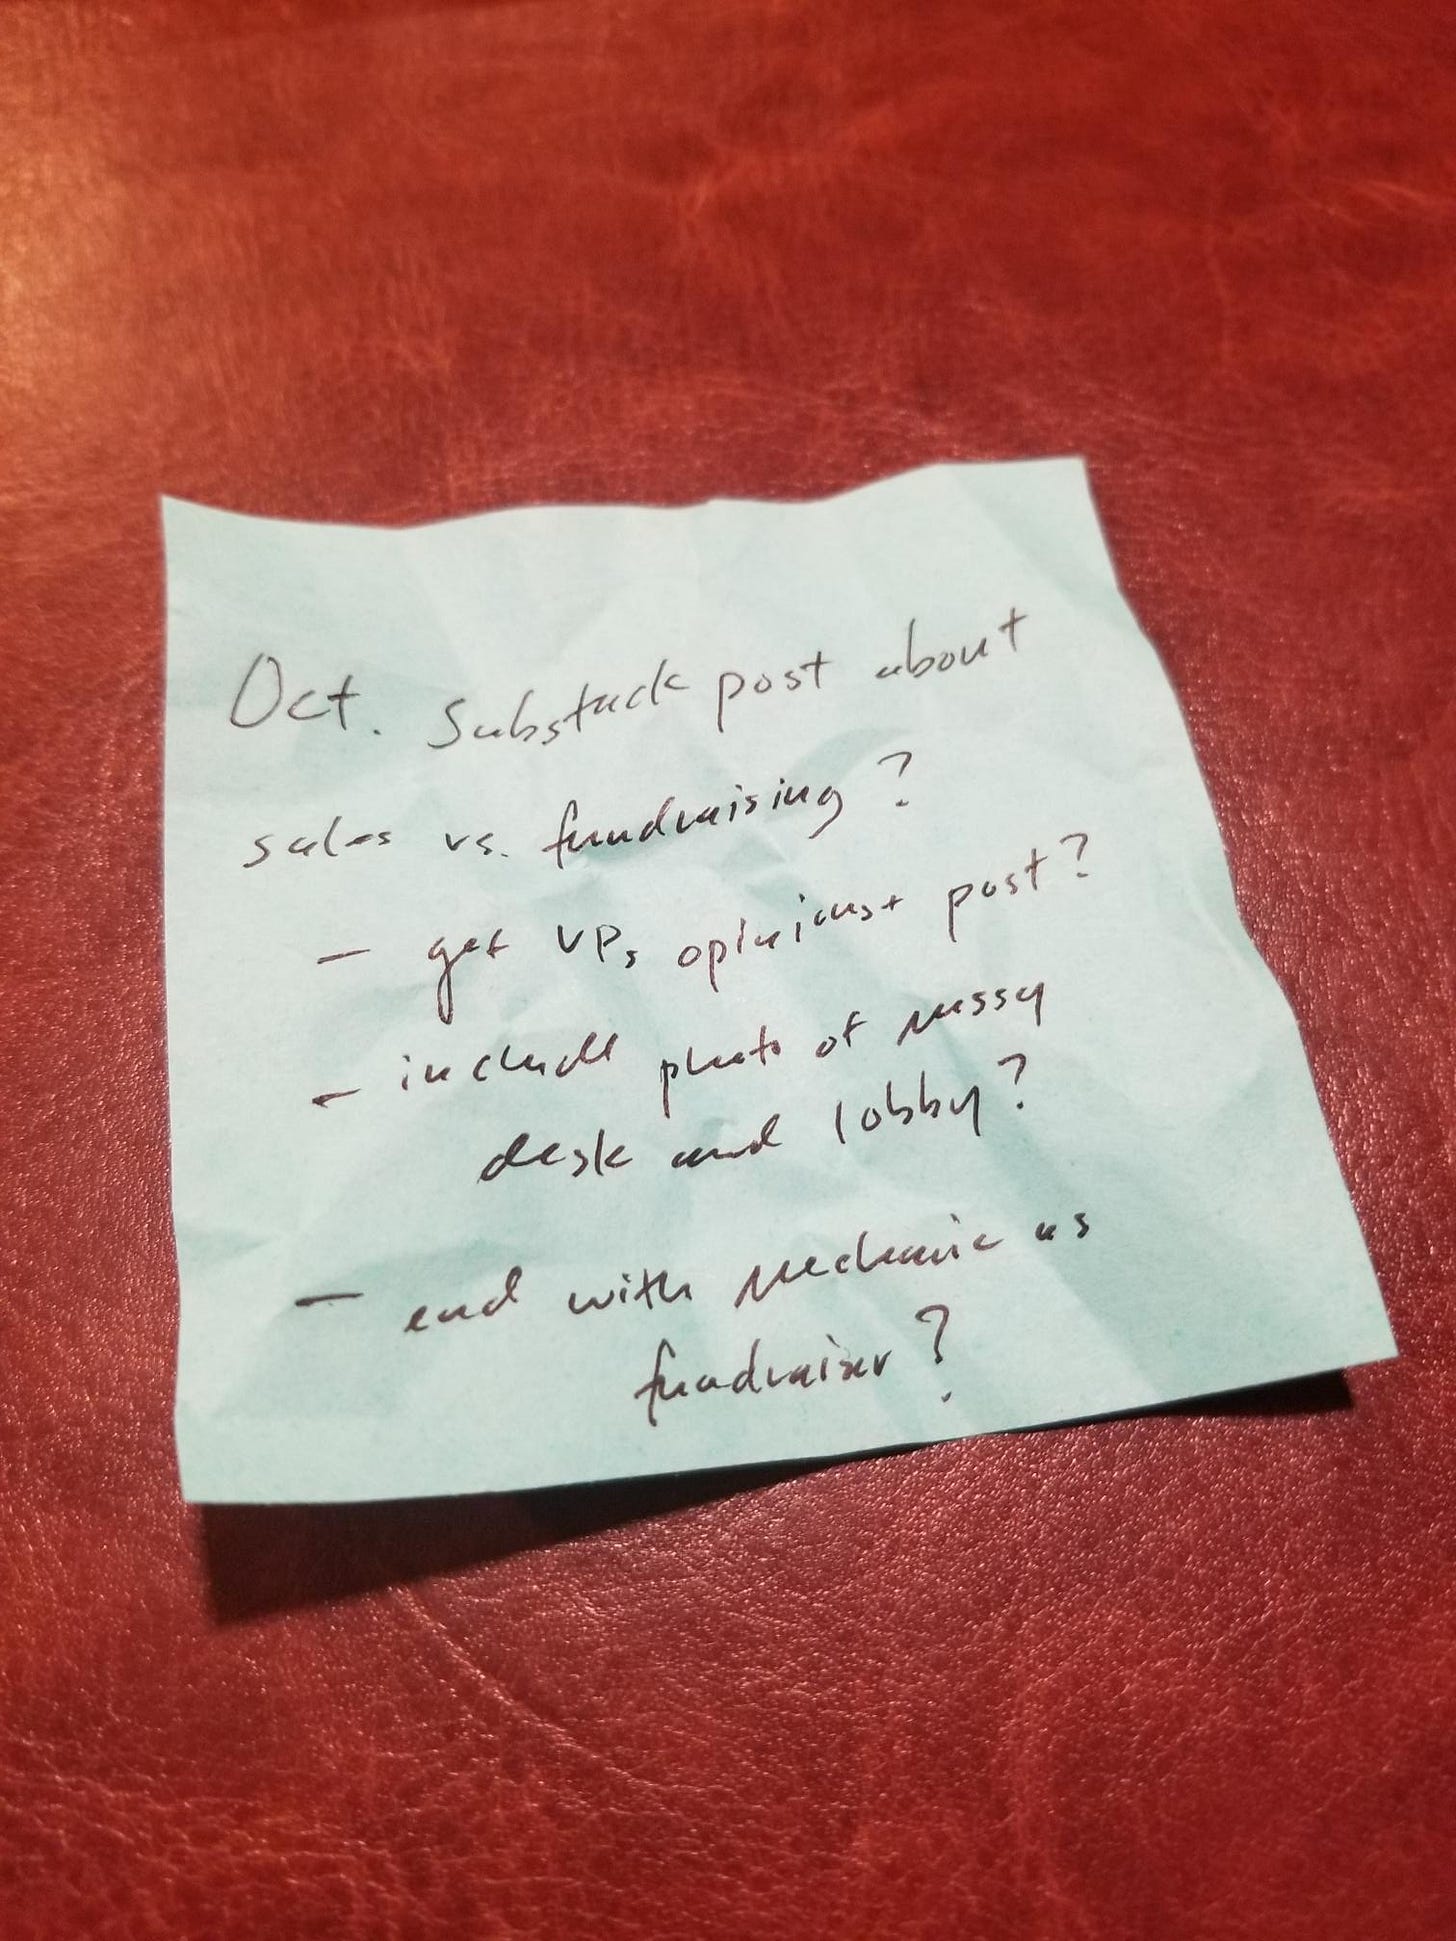 Oct. Substack post about
sales vs. fundraising?
- get VPs opinions + post?
- include photo of messy
desk and lobby?
- end with mechanic as
fundraiser?